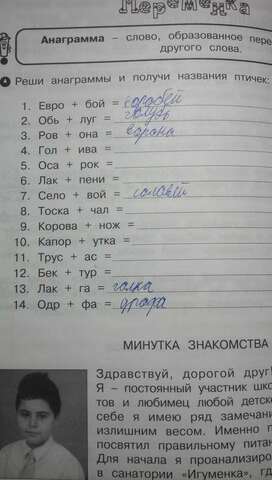 Переменка
Анаграмма – слово, образованное пере
другого слова.
Реши анаграммы и получи названия птичек:
1. Евро + бой = воробей
2. Обь + луг = голубь
3. Ров + она = ворона
4. Гол + ива =
5. Оса + рок =
6. Лак + пени =
7. Село + вой = соловей
8. Тоска + чал =
9. Корова + нож =
10. Капор + утка =
11. Трус + ас =
12. Бек + тур =
13. Лак + га = галка
14. Одр + фа = дрофа
МИНУТКА ЗНАКОМСТВА
Здравствуй, дорогой друг!
Я – постоянный участник шко
тов и любимец любой детско
себе я имею ряд замечани
излишним весом. Именно п
посвятил правильному питан
Для начала я проанализиро
в санатории «Игуменка», гд